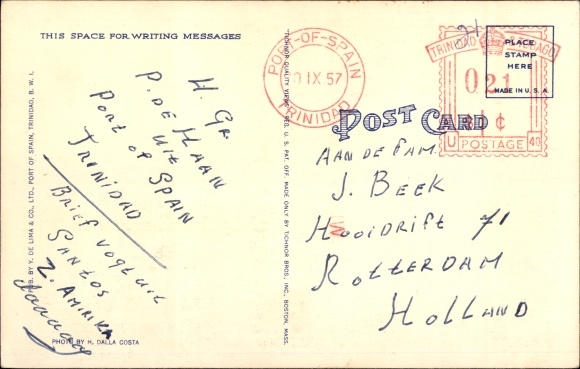 THIS SPACE FOR WRITING MESSAGES
H. Gr
P. DE HAAN
UIT
PORT OF SPAIN
TRINIDAD
BRIEF VOGT UIT
SANTOS
Z. AMIRIKA
PHOTO BY H. DALLA COSTA
PUB. BY Y. DE LIMA & CO., LTD., PORT OF SPAIN, TRINIDAD, B. W. I.
TICHNOR QUALITY VIEWS, REG. U. S. PAT. OFF. MADE ONLY BY TICHNOR BROS., INC., BOSTON, MASS.
PORT-OF-SPAIN
0 IX 57
TRINIDAD
TRINIDAD & TOBAGO
021
¢
U POSTAGE 40
PLACE
STAMP
HERE
MADE IN U. S. A.
POST CARD
AAN DE FAM.
J. BEEK
HOOIDRIFT 71
ROTTERDAM
HOLLAND